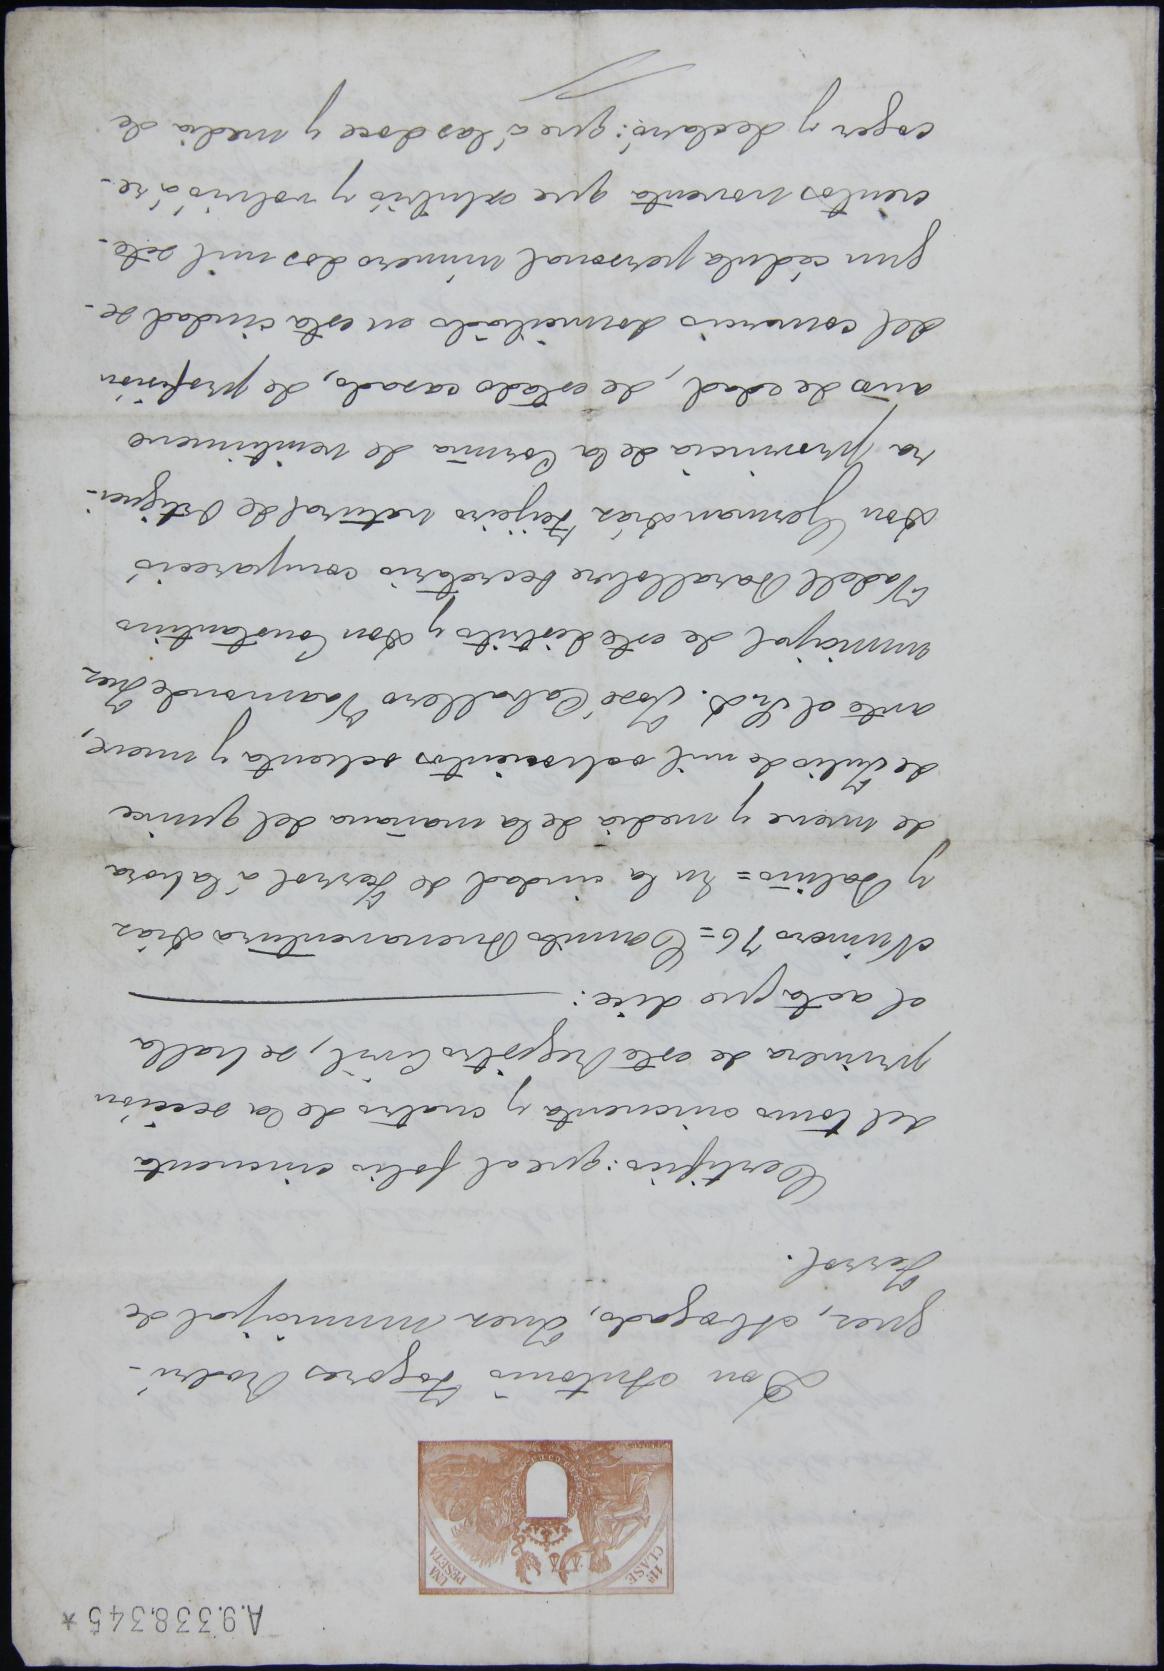 A.9.338.345 *
11ª CLASE
UNA PESETA
Don Antonio Togores Rodri-
guez, Abogado, Juez Municipal de
Ferrol.
Certifico: que al folio cincuenta
del tomo cincuenta y cuatro de la sección
primera de este Registro Civil, se halla
el acta que dice:
Número 76 = Camilo Buenaventura Diaz
y Baliño = En la ciudad de Ferrol á la hora
de nueve y media de la mañana del quince
de Julio de mil ochocientos ochenta y nueve,
ante el Sr. D. José Caballero Vaamonde Juez
municipal de este distrito y Don Constantino
Vadell Barallobre Secretario compareció
Don German Diaz Teijeiro natural de Ortiguei-
ra provincia de la Coruña de veintinueve
años de edad, de estado casado, de profesión
del comercio domiciliado en esta ciudad se-
gun cédula personal número dos mil sete-
cientos noventa que exhibió y volvió á re-
coger y declaró: que á las doce y media de